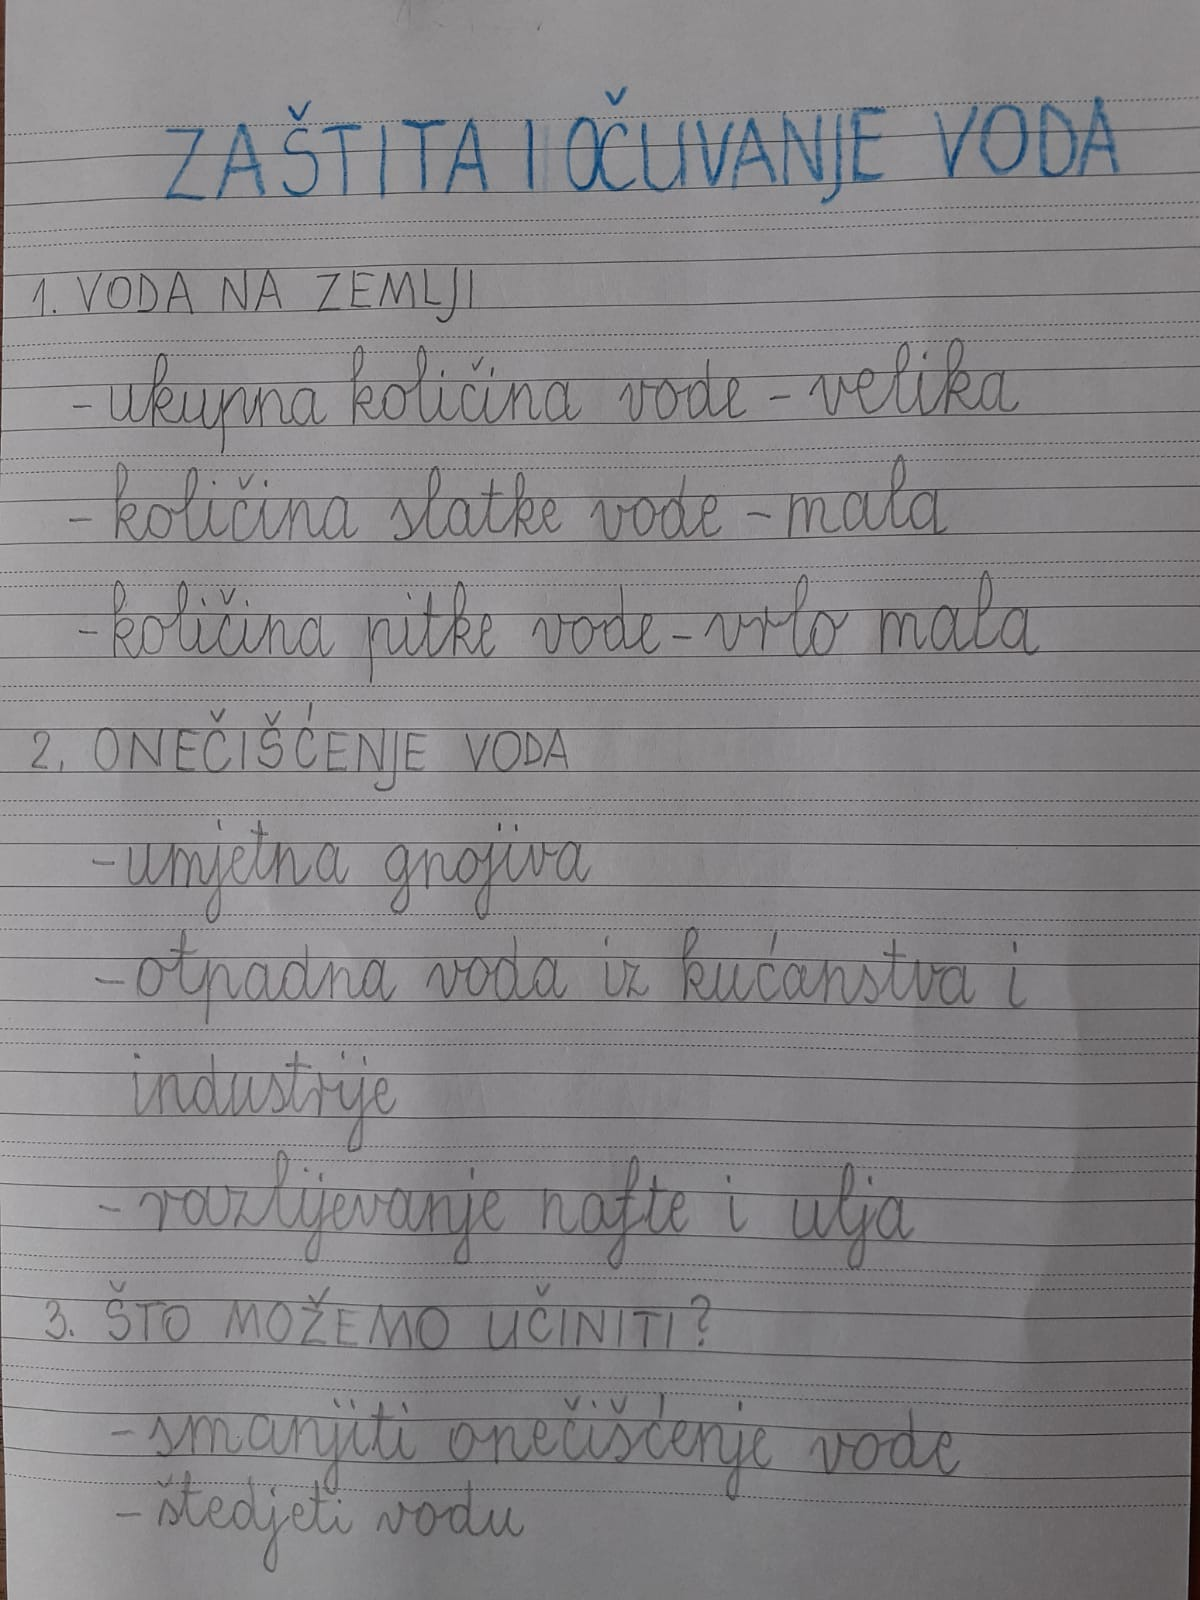 ZAŠTITA I OČUVANJE VODA
1. VODA NA ZEMLJI
- ukupna količina vode - velika
- količina slatke vode - mala
- količina pitke vode - vrlo mala
2. ONEČIŠĆENJE VODA
- umjetna gnojiva
- otpadna voda iz kućanstva i
industrije
- razlijevanje nafte i ulja
3. ŠTO MOŽEMO UČINITI?
- smanjiti onečišćenje vode
- štedjeti vodu